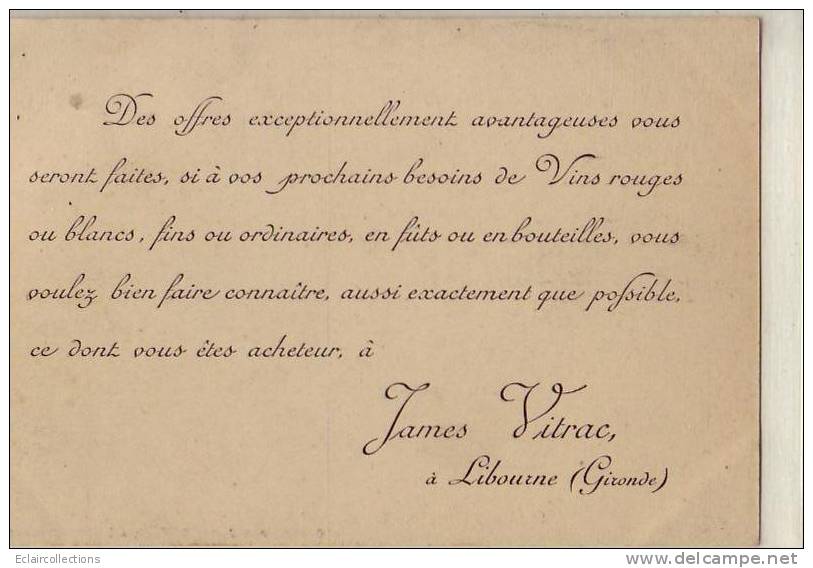 Des offres exceptionnellement avantageuses vous
seront faites, si à vos prochains besoins de Vins rouges
ou blancs, fins ou ordinaires, en fûts ou en bouteilles, vous
voulez bien faire connaître, aussi exactement que possible,
ce dont vous êtes acheteur, à
James Vitrac,
à Libourne (Gironde)
Eclaircollections
www.delcampe.net